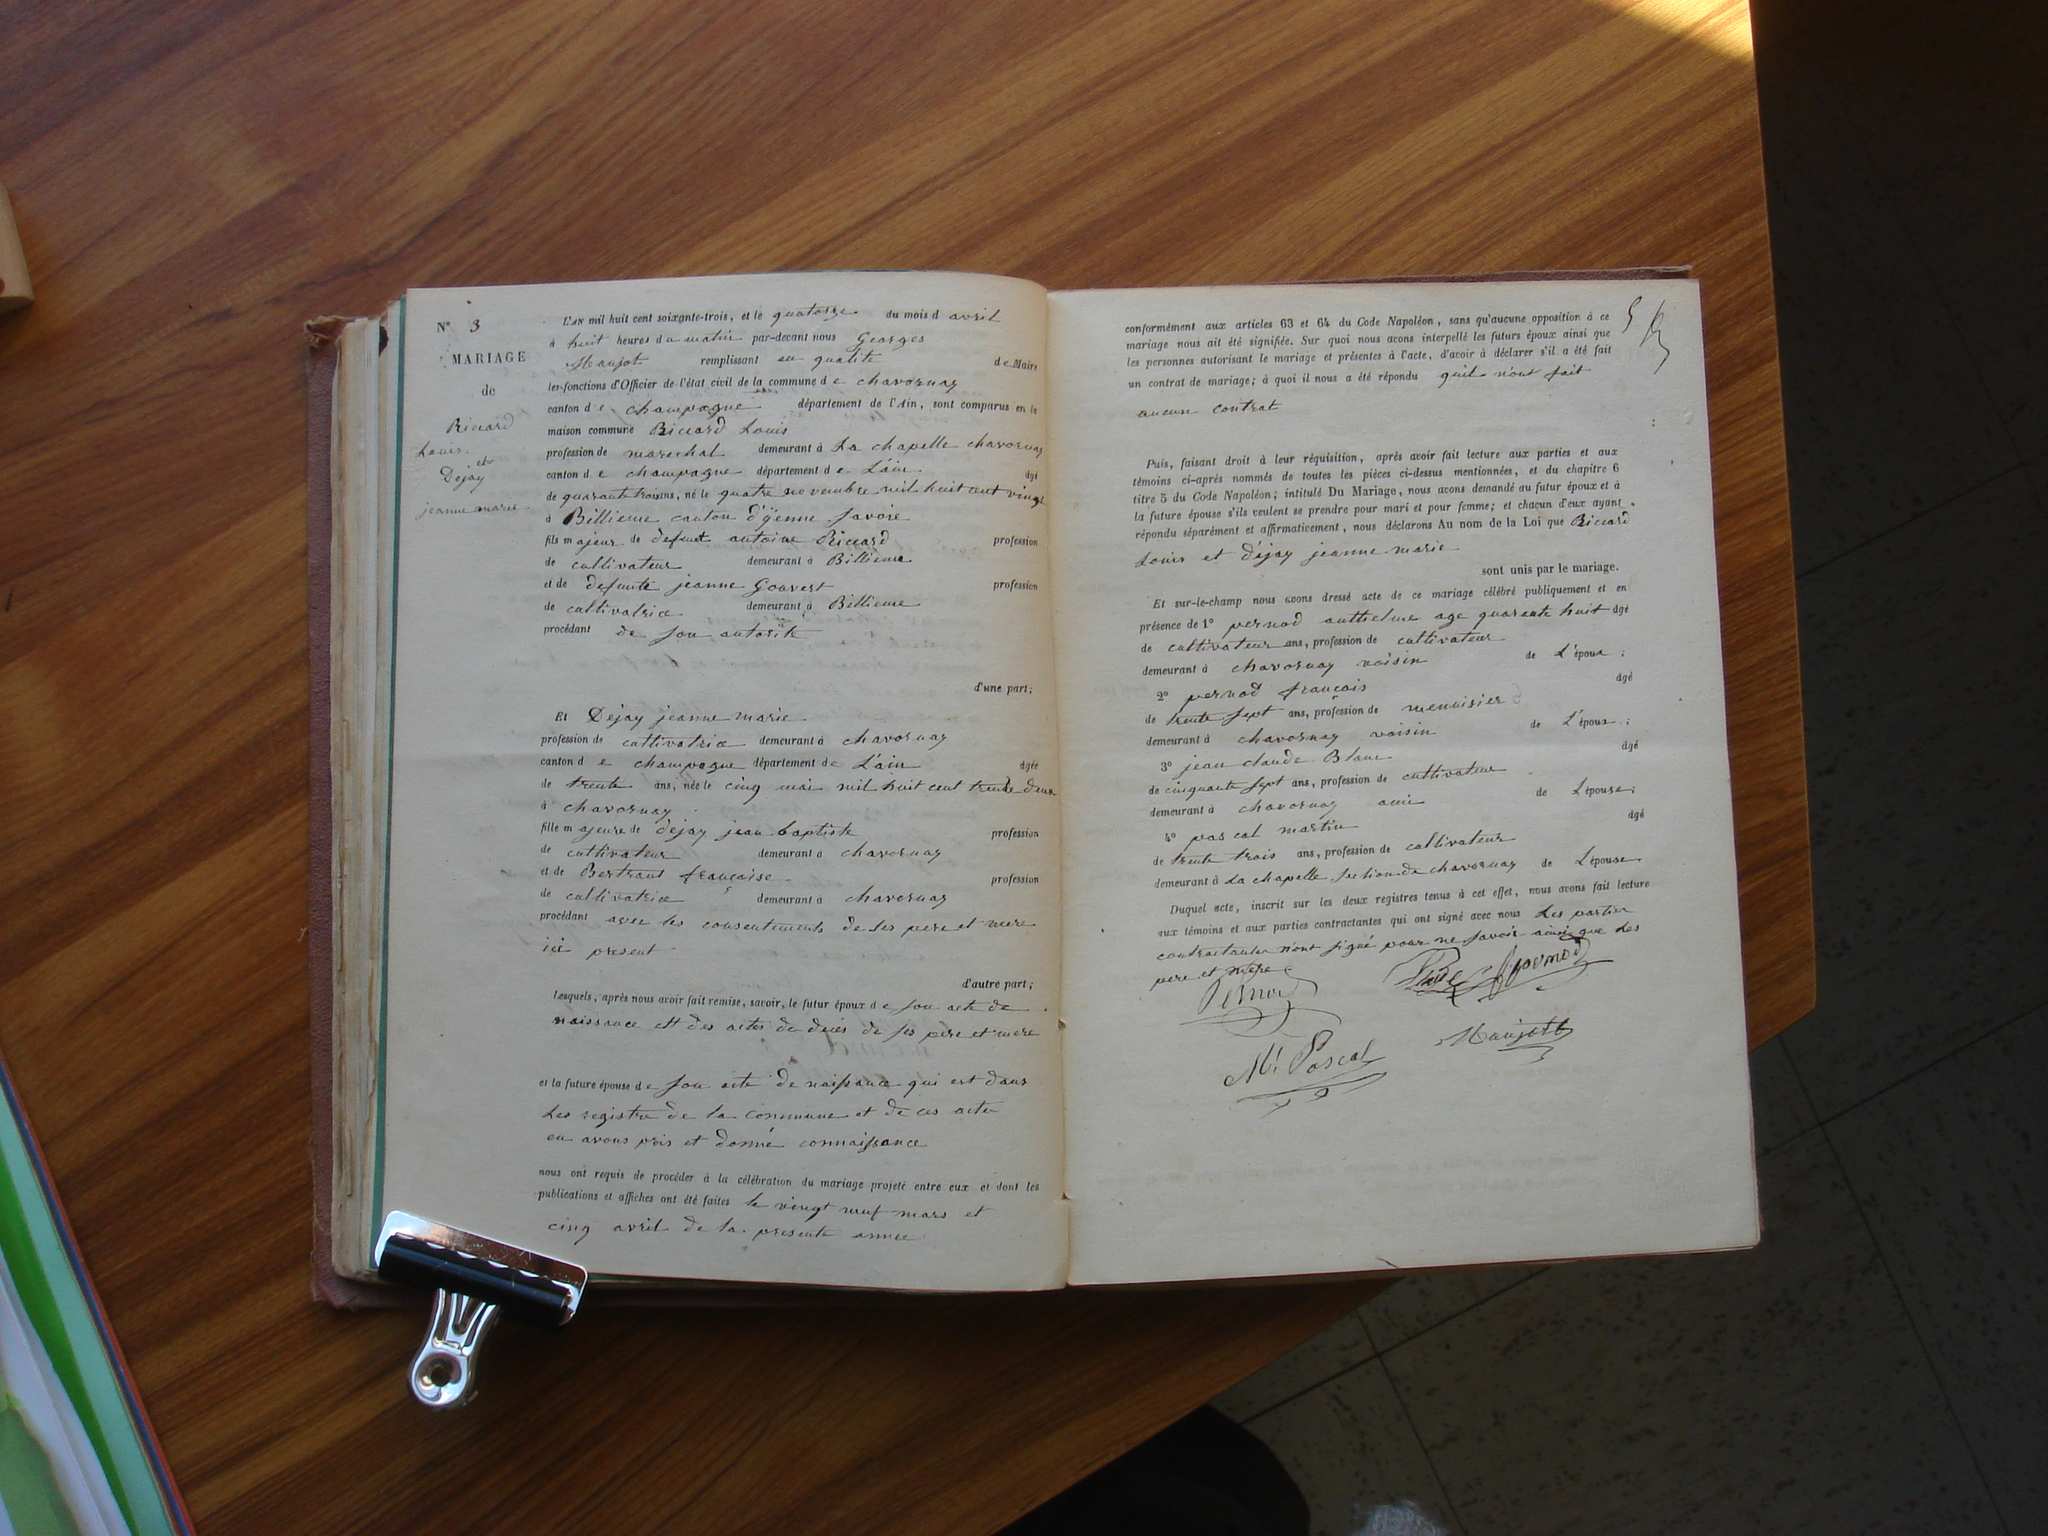 N° 3
MARIAGE
de
Riccard
Louis
et
Dejay
jeanne marie
L'AN mil huit cent soixante-trois, et le quatorze du mois d avril
à huit heures du matin par-devant nous Georges
Maujot remplissant en qualité de Maire
les fonctions d'Officier de l'état civil de la commune de chavornay
canton de champagne département de l'Ain, sont comparus en la
maison commune Riccard Louis
profession de marechal demeurant à La chapelle chavornay
canton de champagne département de L'ain âgé
de quarante trois ans, né le quatre novembre mil huit cent vingt
à Billieme canton d'yenne Savoie
fils majeur de defunt antoine Riccard profession
de cultivateur demeurant à Billieme
et de defunte jeanne Gouvert profession
de cultivatrice demeurant à Billieme
procédant de son autorité
d'une part;
Et Dejay jeanne marie
profession de cultivatrice demeurant à chavornay
canton de champagne département de L'ain âgée
de trente ans, née le cinq mai mil huit cent trente deux
à chavornay
fille majeure de dejay jean baptiste profession
de cultivateur demeurant à chavornay
et de Bertrant française profession
de cultivatrice demeurant à chavornay
procédant avec les consentements de ses pere et mere
ici present
d'autre part;
Lesquels, après nous avoir fait remise, savoir, le futur époux de son acte de
naissance et des actes de deces de ses pere et mere
et la future épouse de son acte de naissance qui est dans
Les registre de la commune et de ces acte
en avons pris et donné connaissance
nous ont requis de procéder à la célébration du mariage projeté entre eux et dont les
publications et affiches ont été faites le vingt neuf mars et
cinq avril de la presente annee
5
conformément aux articles 63 et 64 du Code Napoléon, sans qu'aucune opposition à ce
mariage nous ait été signifiée. Sur quoi nous avons interpellé les futurs époux ainsi que
les personnes autorisant le mariage et présentes à l'acte, d'avoir à déclarer s'il a été fait
un contrat de mariage; à quoi il nous a été répondu quil n'ont fait
aucun contrat
Puis, faisant droit à leur réquisition, après avoir fait lecture aux parties et aux
témoins ci-après nommés de toutes les pièces ci-dessus mentionnées, et du chapitre 6
titre 5 du Code Napoléon; intitulé Du Mariage, nous avons demandé au futur époux et à
la future épouse s'ils veulent se prendre pour mari et pour femme; et chacun d'eux ayant
répondu séparément et affirmativement, nous déclarons Au nom de la Loi que Riccard
Louis et dejay jeanne marie
sont unis par le mariage.
Et sur-le-champ nous avons dressé acte de ce mariage célébré publiquement et en
présence de 1° pernod anthelme age quarente huit âgé
de cultivateur ans, profession de cultivateur
demeurant à chavornay voisin de L'époux;
2° pernod français âgé
de trente sept ans, profession de menuisier
demeurant à chavornay voisin de L'époux;
3° jean claude Blanc âgé
de cinquante sept ans, profession de cultivateur
demeurant à chavornay ami de L'épouse;
4° pascal martin âgé
de trente trois ans, profession de cultivateur
demeurant à La chapelle section de chavornay de L'épouse
Duquel acte, inscrit sur les deux registres tenus à cet effet, nous avons fait lecture
aux témoins et aux parties contractantes qui ont signé avec nous Les parties
contractantes n'ont signé pour ne savoir ainsi que Les
pere et mere
Pernod
pernod
Mt Pascal
Maujot